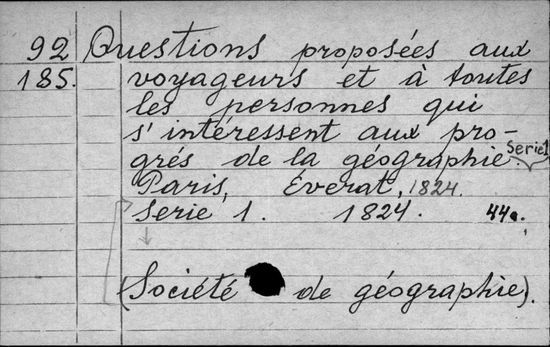 92 Questions proposées aux
185. voyageurs et à toutes
les personnes qui
s'intéressent aux pro-
grés de la géographie. Serie 1
Paris, Éverat, 1824.
Serie 1. 1824. 44a.
(Société de géographie).